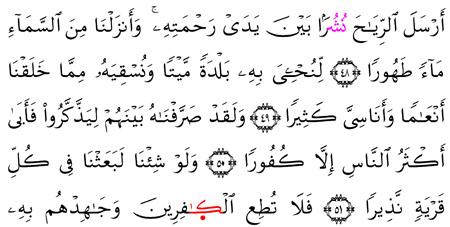 أَرْسَلَ ٱلرِّيَٰحَ نُشُرًۢا بَيْنَ يَدَىْ رَحْمَتِهِۦۚ وَأَنزَلْنَا مِنَ ٱلسَّمَآءِ
مَآءً طَهُورًا ۝٤٨ لِّنُحْـِۧىَ بِهِۦ بَلْدَةً مَّيْتًا وَنُسْقِيَهُۥ مِمَّا خَلَقْنَآ
أَنْعَٰمًا وَأَنَاسِىَّ كَثِيرًا ۝٤٩ وَلَقَدْ صَرَّفْنَٰهُ بَيْنَهُمْ لِيَذَّكَّرُوا۟ فَأَبَىٰٓ
أَكْثَرُ ٱلنَّاسِ إِلَّا كُفُورًا ۝٥٠ وَلَوْ شِئْنَا لَبَعَثْنَا فِى كُلِّ
قَرْيَةٍ نَّذِيرًا ۝٥١ فَلَا تُطِعِ ٱلْكَٰفِرِينَ وَجَٰهِدْهُم بِهِۦ